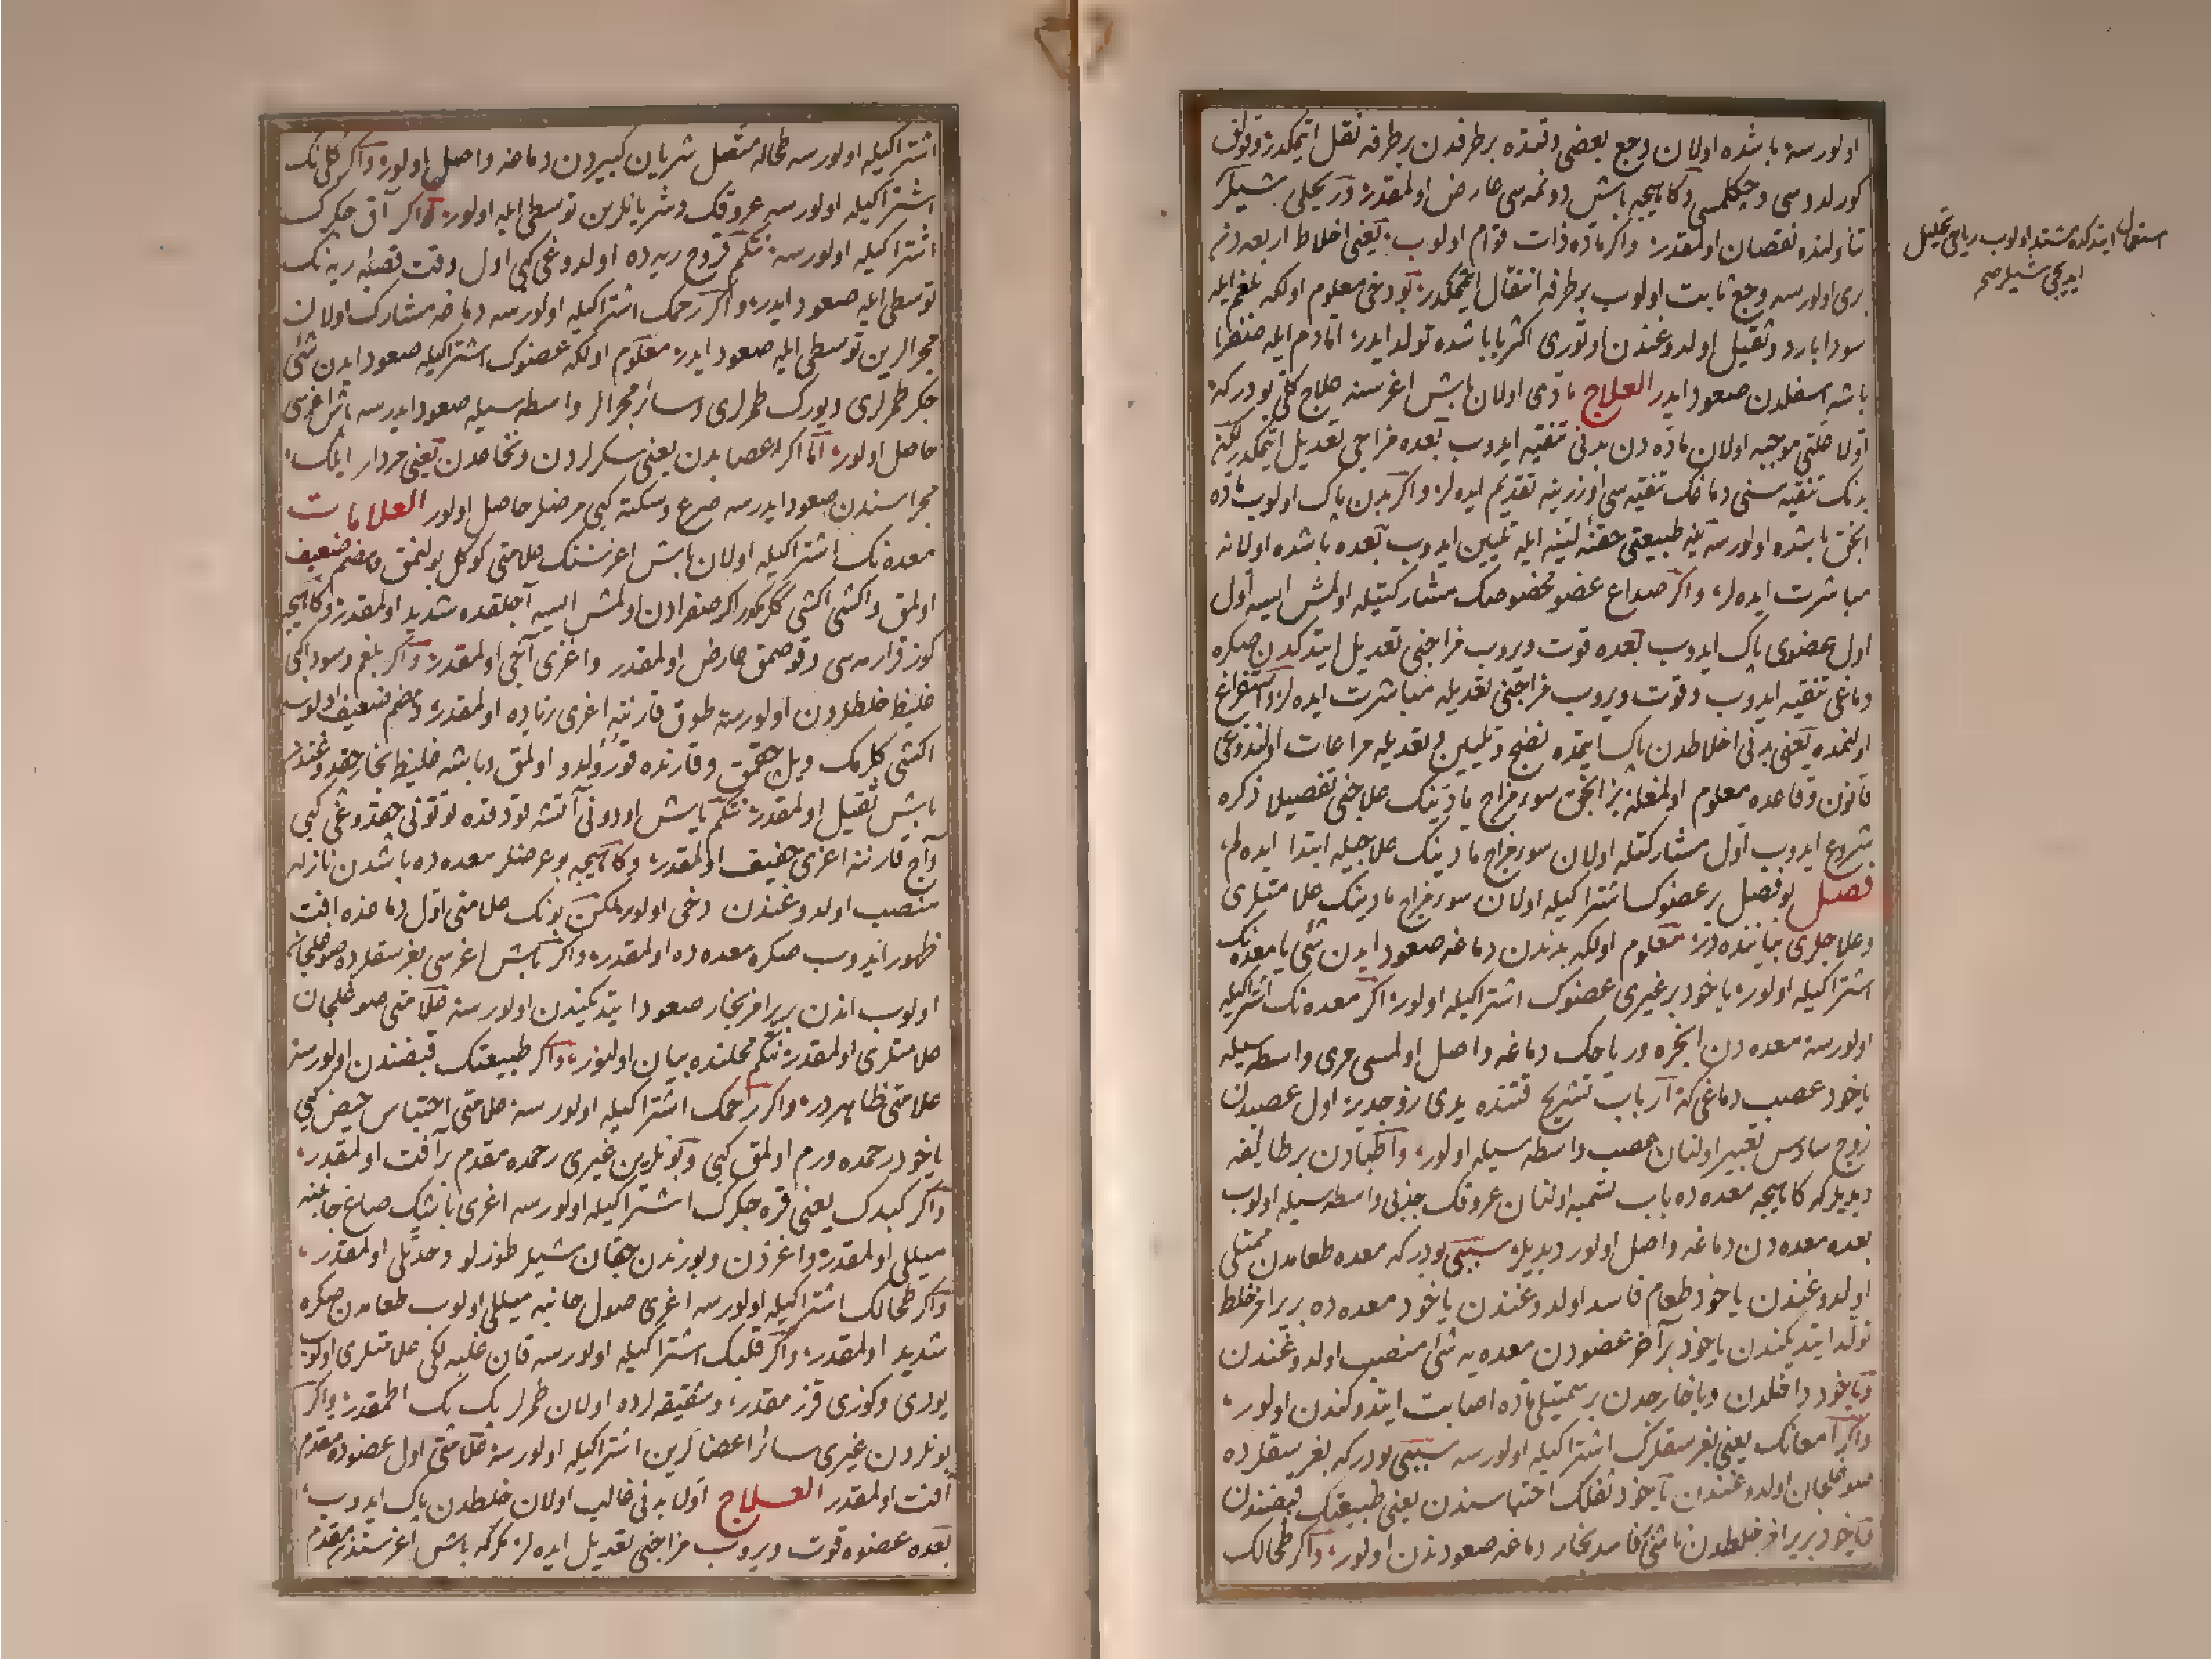 اولورسه باشده اولان وجع بعضی وقتده برطرفدن برطرفه نقل ایتمکدر وقولاق
کورلدوسی وچکلمسی وکاهیجه باش دونمه سی عارض اولمقدر وریحلی شیلر
تناولنده نقصان اولمقدر واکر ماده ذات قوام اولوب یعنی اخلاط اربعه دن
بری اولورسه وجع ثابت اولوب برطرفه انتقال ایتممکدر بو دخی معلوم اولکه بلغم ایله
سودا بارد وثقیل اولدوغندن اوتوری اکثریا باشده تولد ایدر اما دم ایله صفرا
باشه اسفلدن صعود ایدر العلاج مادی اولان باش اغرسنه علاج کلی بودرکه
اولا علتی موجبه اولان ماده دن بدنی تنقیه ایدوب بعده مزاجی تعدیل ایتمکدر لکن
بدنک تنقیه سنی دماغک تنقیه سی اوزرینه تقدیم ایده لر واکر بدن پاک اولوب ماده
انجق باشده اولورسه ینه طبیعتی حقنه لینه ایله تلیین ایدوب بعده باشده اولانه
مباشرت ایده لر واکر صداع عضو مخصوصک مشارکتیله اولمش ایسه اول
اول عضوی پاک ایدوب بعده قوت ویروب مزاجنی تعدیل ایتدکدن صکره
دماغی تنقیه ایدوب وقوت ویروب مزاجنی تعدیله مباشرت ایده لر واستفراغ
اولنمده یعنی بدنی اخلاطدن پاک ایتمده نضج وتلیین وتعدیله مراعات اولندوغی
قانون وقاعده معلوم اولمغله بز انجق سوء مزاج مادینک علاجنی تفصیلا ذکره
شروع ایدوب اول مشارکتله اولان سوء مزاج مادینک علاجیله ابتدا ایده لم
فصل بو فصل بر عضوک اشتراکیله اولان سوء مزاج مادینک علامتلری
وعلاجلری بیاننده در معلوم اولکه بدندن دماغه صعود ایدن شی یا معده نک
اشتراکیله اولور یاخود بر غیری عضوک اشتراکیله اولور اکر معده نک اشتراکیله
اولورسه معده دن ابخره وریاحک دماغه واصل اولمسی مری واسطه سیله
یاخود عصب دماغی که ارباب تشریح قتنده یدی زوجدر اول عصبدن
زوج سادس تعبیر اولنان عصب واسطه سیله اولور واطبادن بر طایفه
دیدیلرکه کاهیجه معده ده باب تسمیه اولنان عروقک جذبی واسطه سیله اولوب
بعده معده دن دماغه واصل اولور دیدیلر سببی بودرکه معده طعامدن ممتلی
اولدوغندن یاخود طعام فاسد اولدوغندن یاخود معده ده بر یرامز خلط
تولد ایتدیکندن یاخود بر آخر عضودن معده یه شی منصب اولدوغندن
ویاخود داخلدن ویا خارجدن بر سمیتلی ماده اصابت ایتدوکندن اولور
واکر امعانک یعنی بغرسقلرک اشتراکیله اولورسه سببی بودرکه بغرسقلرده
صوغلجان اولدوغندن یاخود ثفلک احتباسندن یعنی طبیعتک قبضندن
ویاخود بر یرامز خلطدن ناشی فاسد بخار دماغه صعودندن اولور واکر طحالک
استعمال ایتدکده مشتد اولوب ریاحی تحلیل
ایدیجی شیلر صح
اشتراکیله اولورسه طحاله متصل شریان کبیردن دماغه واصل اولور واکر کلی نک
اشتراکیله اولورسه عروقک وشریانلرین توسطی ایله اولور واکر آق جکرک
اشتراکیله اولورسه نتکم قروح ریه ده اولدوغی کبی اول وقت قصبه ریه نک
توسطی ایله صعود ایدر واکر رحمک اشتراکیله اولورسه دماغه مشارک اولان
مجرالرین توسطی ایله صعود ایدر معلوم اولکه عضوک اشتراکیله صعود ایدن شی
جکر طمرلری ویورک طمرلری وسائر مجرالر واسطه سیله صعود ایدرسه باش اغرسی
حاصل اولور اما اکر اعصابدن یعنی سکرلردن ونخاعدن یعنی مردار ایلک
مجراسندن صعود ایدرسه صرع وسکته کبی مرضلر حاصل اولور العلامات
معده نک اشتراکیله اولان باش اغرسنک علامتی کوکل بولنمق وهضم ضعیف
اولمق واکشی اکشی ککرمکدر اکر صفرادن اولمش ایسه آجلقده شدید اولمقدر وکاهیجه
کوز قرارمه سی وقوصمق عارض اولمقدر واغزی آجی اولمقدر واکر بلغم وسودا کبی
غلیظ خلطلردن اولورسه طوق قارننه اغری زیاده اولمقدر وهضم ضعیف اولوب
اکشی ککرمک ویل چقمق وقارنده قورولدو اولمق وباشه غلیظ بخار چقدوغندن
باش ثقیل اولمقدر نتکم یاش اودونی آتشه قودقده توتونی چقدوغی کبی
وآج قارننه اغری خفیف اولمقدر وکاهیجه بو عرضلر معده ده باشدن نازله
منصب اولدوغندن دخی اولور لکن بونک علامتی اول دماغده افت
ظهور ایدوب صکره معده ده اولمقدر واکر باش اغرسی بغرسقلرده صوغلجان
اولوب اندن بر یرامز بخار صعود ایتدیکندن اولورسه علامتی صوغلجان
علامتلری اولمقدر نتکم محلنده بیان اولنور واکر طبیعتک قبضندن اولورسه
علامتی ظاهردر واکر رحمک اشتراکیله اولورسه علامتی احتباس حیض کبی
یاخود رحمده ورم اولمق کبی وبونلرین غیری رحمده مقدم بر آفت اولمقدر
واکر کبدک یعنی قره جکرک اشتراکیله اولورسه اغری باشک صاغ جانبنه
میللی اولمقدر واغزدن وبورندن چقان شیلر طوزلو وحدتلی اولمقدر
واکر طحالک اشتراکیله اولورسه اغری صول جانبه میللی اولوب طعامدن صکره
شدید اولمقدر واکر قلبک اشتراکیله اولورسه قان غلبه لکی علامتلری اولوب
یوزی وکوزی قزرمقدر وشقیقه لرده اولان طمرلر بک بک اطمقدر واکر
بونلردن غیری سائر اعضالرین اشتراکیله اولورسه علامتی اول عضوده مقدم
آفت اولمقدر العلاج اولا بدنی غالب اولان خلطدن پاک ایدوب
بعده عضوه قوت ویروب مزاجنی تعدیل ایده لر مکرکه باش اغرسندن مقدم